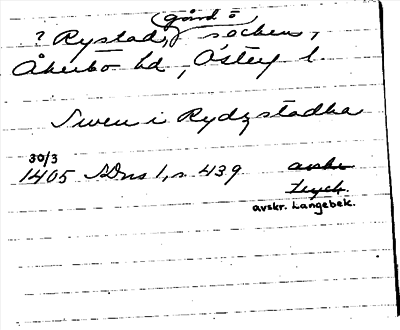 gård o
? Rystad, sockens,
Åkerbo hd, Österg l.
Swen i Rydzstadha
30/3
1405 SDns 1, s 439 avskr
avskr. Langebek.